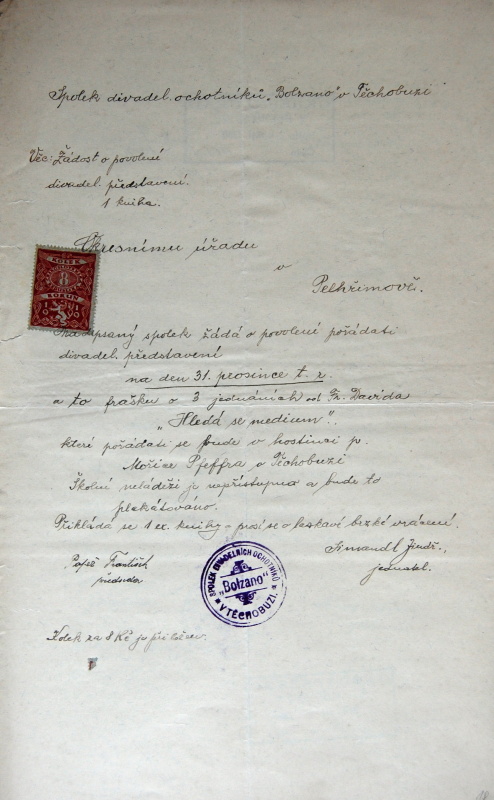 Spolek divadel. ochotníků „Bolzano" v Těchobuzi
Věc: Žádost o povolení
divadel. představení.
1 kniha.
Okresnímu úřadu
v
Pelhřimově.
KOLEK
8
KORUN
1919
Podepsaný spolek žádá o povolení pořádati
divadel. představení
na den 31. prosince t. r.
a to frašku o 3 jednáních od Fr. Davida
„Hledá se medium".
které pořádati se bude v hostinci p.
Mořice Pfeffra v Těchobuzi
Školní mládeži je nepřístupna a bude to
plakátováno.
Přikládá se 1 ex. knihy a prosí se o laskavé brzké vrácení.
František
předseda
Jindř.,
jednatel.
SPOLEK DIVADELNÍCH OCHOTNÍKŮ
„Bolzano"
V TĚCHOBUZI.
Kolek za 8 Kč je přiložen.